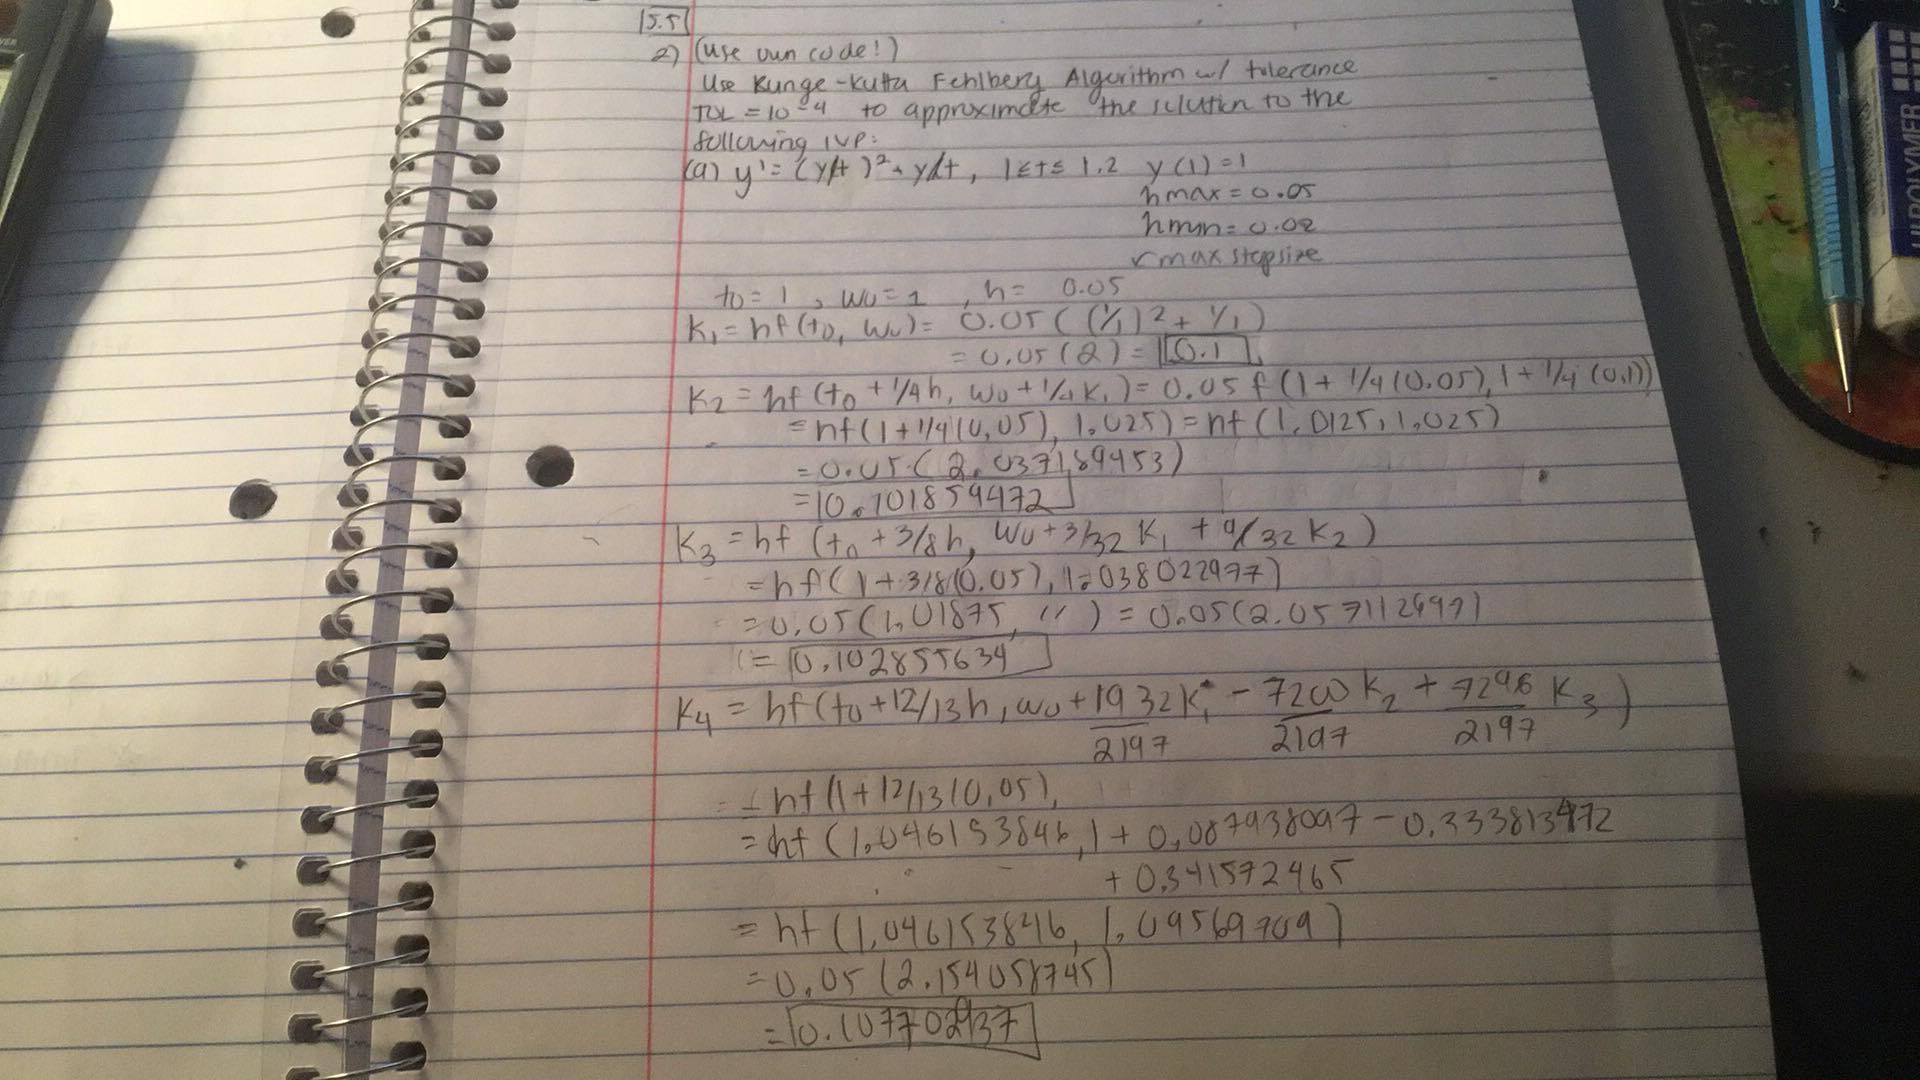 5.5
2) (use own code!)
Use Runge-Kutta Fehlberg Algorithm w/ tolerance
TOL = 10^-4 to approximate the solution to the
following IVP:
(a) y' = (y/t)^2 + y/t, 1≤t≤1.2 y(1)=1
hmax = 0.05
hmin = 0.02
max stepsize
t0 = 1, w0 = 1, h = 0.05
K1 = hf(t0, w0) = 0.05((1/1)^2 + 1/1)
= 0.05(2) = 0.1
K2 = hf(t0 + 1/4h, w0 + 1/4K1) = 0.05 f(1 + 1/4(0.05), 1 + 1/4(0.1))
= hf(1+1/4(0.05), 1.025) = hf(1.0125, 1.025)
= 0.05(2.037189453)
= 0.101859472
K3 = hf(t0 + 3/8h, w0 + 3/32 K1 + 9/32 K2)
= hf(1+3/8(0.05), 1.038022977)
= 0.05(1.01875, '') = 0.05(2.057112699)
= 0.102855634
K4 = hf(t0 + 12/13h, w0 + 1932/2197 K1 - 7200/2197 K2 + 7296/2197 K3)
= hf(1+12/13(0.05),
= hf(1.046153846, 1 + 0.087938097 - 0.333813472
+ 0.341572465
= hf(1.046153846, 1.09569709)
= 0.05(2.154058745)
= 0.107702937
UPOLYMER